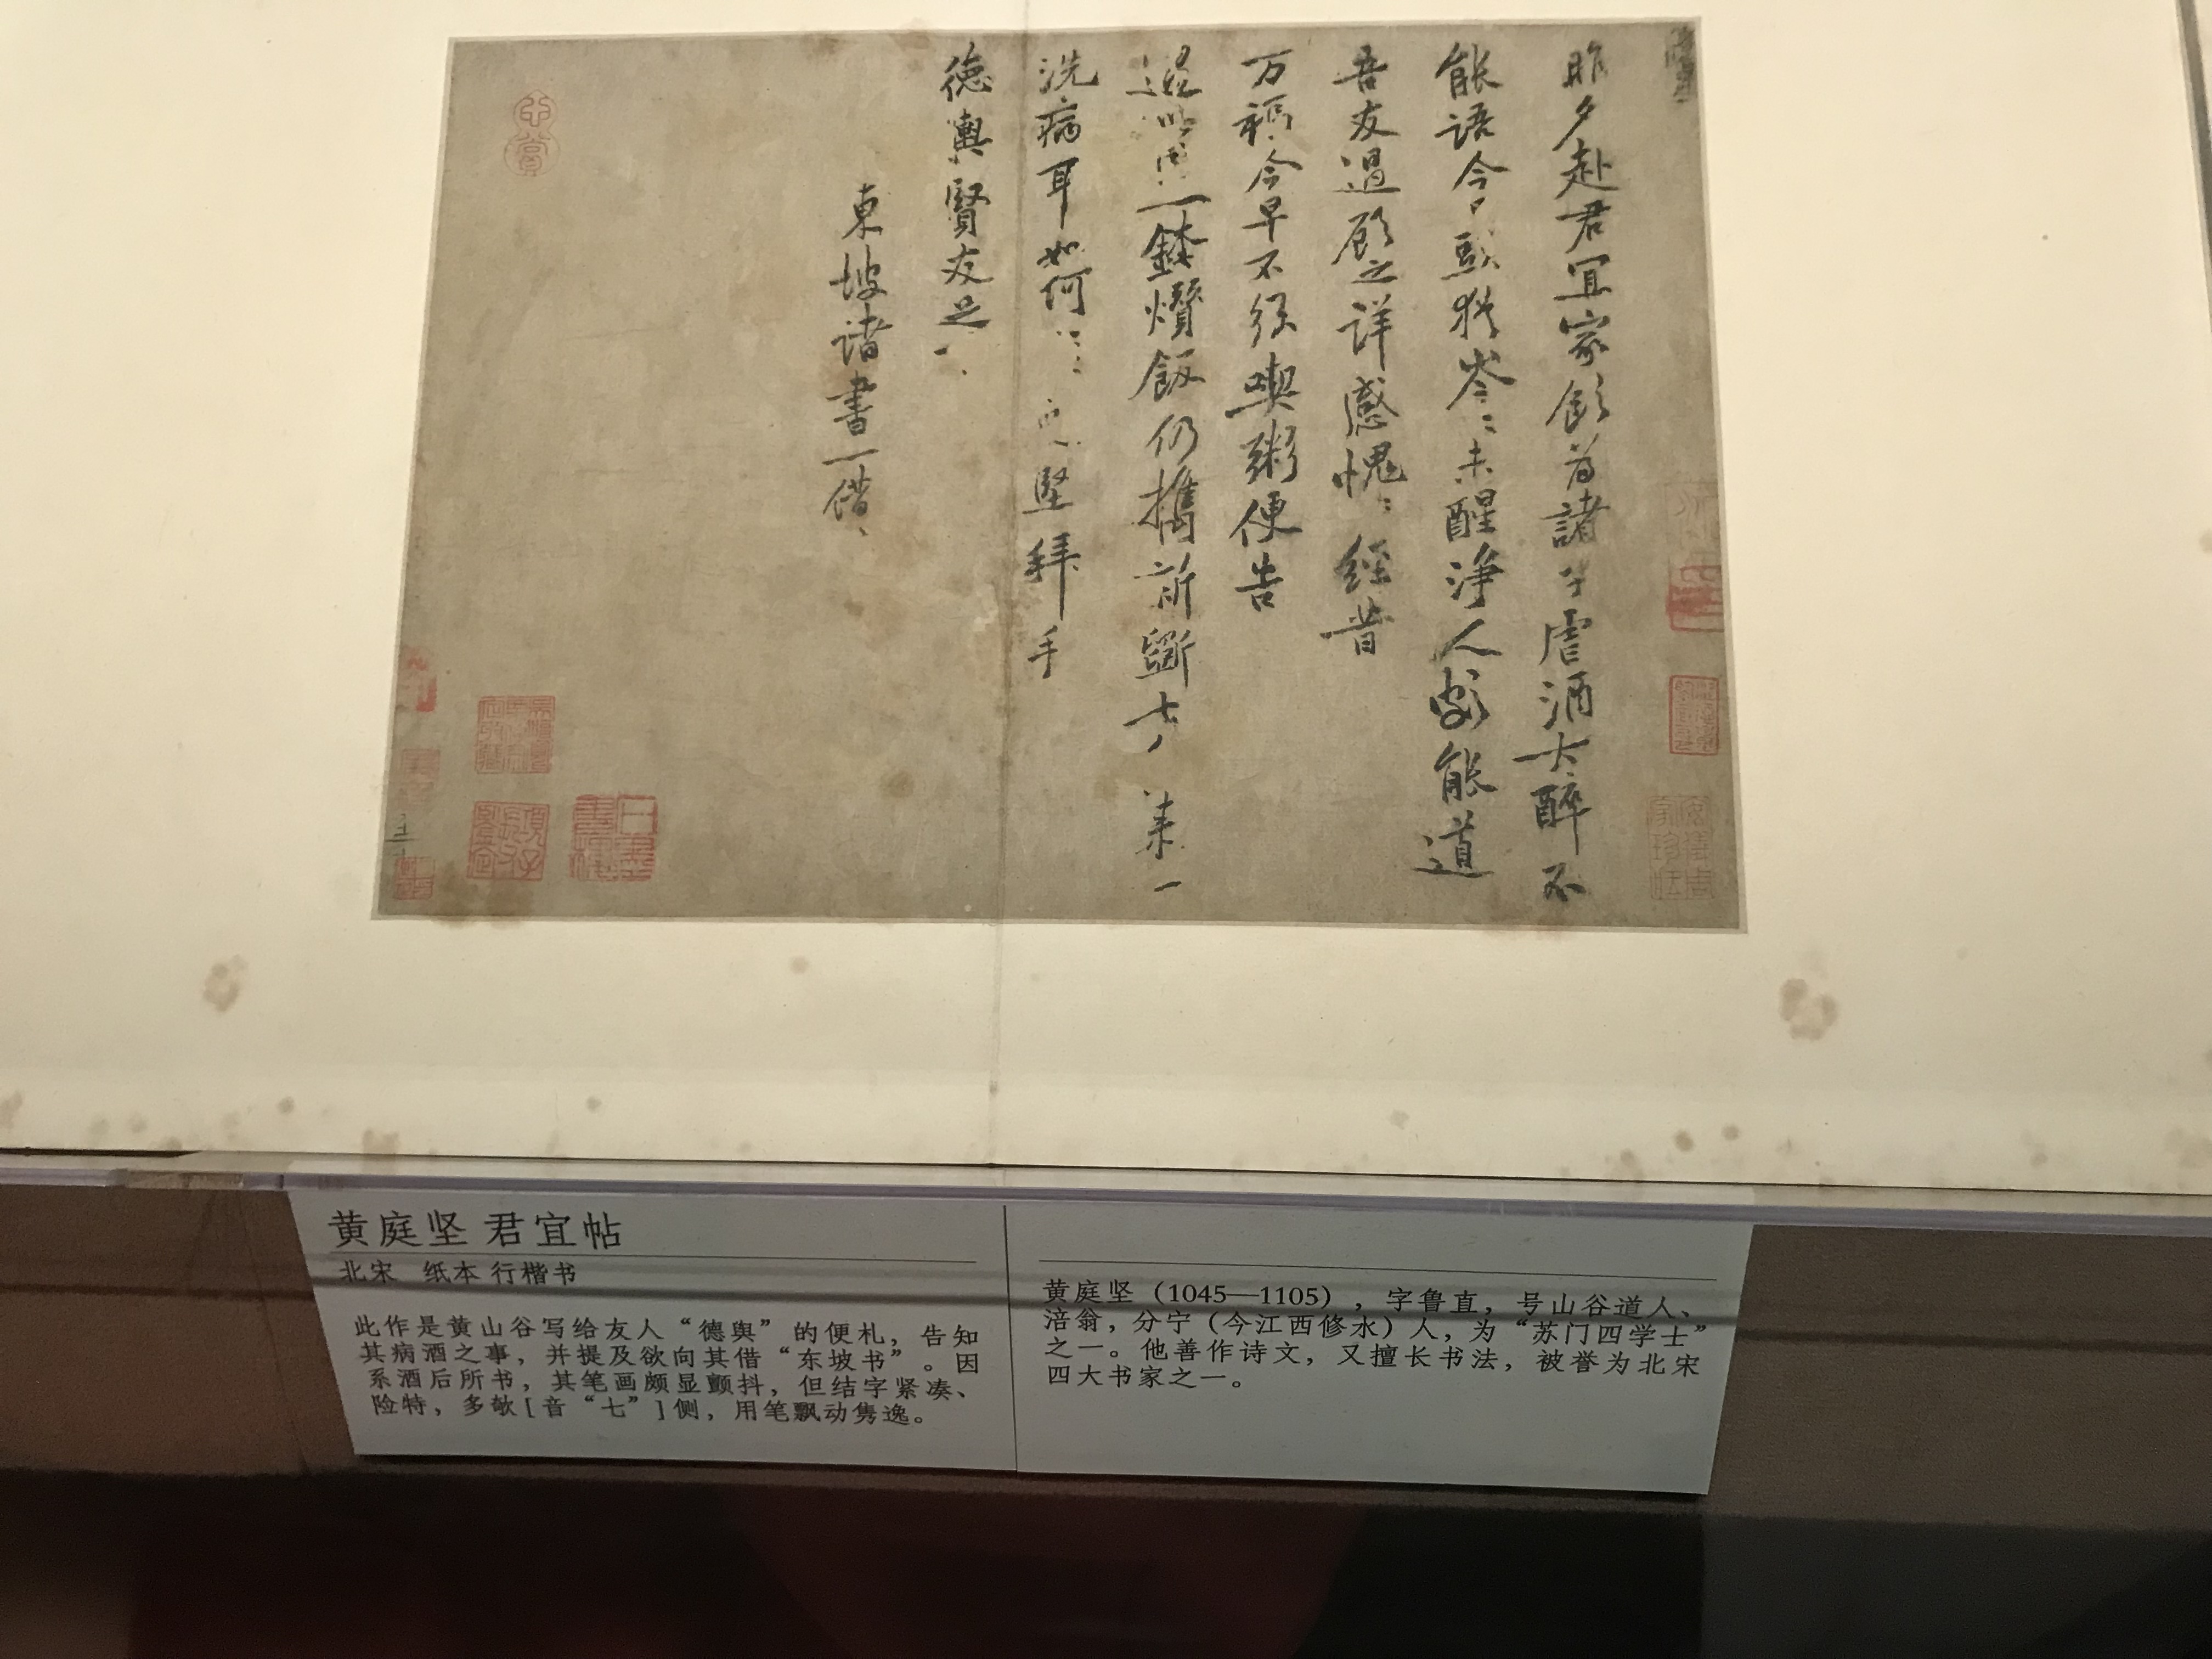 昨夕赴君宜家飲為諸子虐酒大醉不
能語今日頭猶岑〻未醒浄人劣能道
吾友過顧之詳感愧〻經昔
万福今早不欲喫粥便告
一鉢饡飯仍攜新斲七絃一
洗病耳如何〻〻庭堅拜手
德輿賢友足下
東坡諸書一借〻
黄庭坚 君宜帖
北宋 纸本 行楷书
此作是黄山谷写给友人“德舆”的便札，告知
其病酒之事，并提及欲向其借“东坡书”。因
系酒后所书，其笔画颇显颤抖，但结字紧凑、
险特，多欹[音“七”]侧，用笔飘动隽逸。
黄庭坚（1045—1105），字鲁直，号山谷道人、
涪翁，分宁（今江西修水）人，为“苏门四学士”
之一。他善作诗文，又擅长书法，被誉为北宋
四大书家之一。